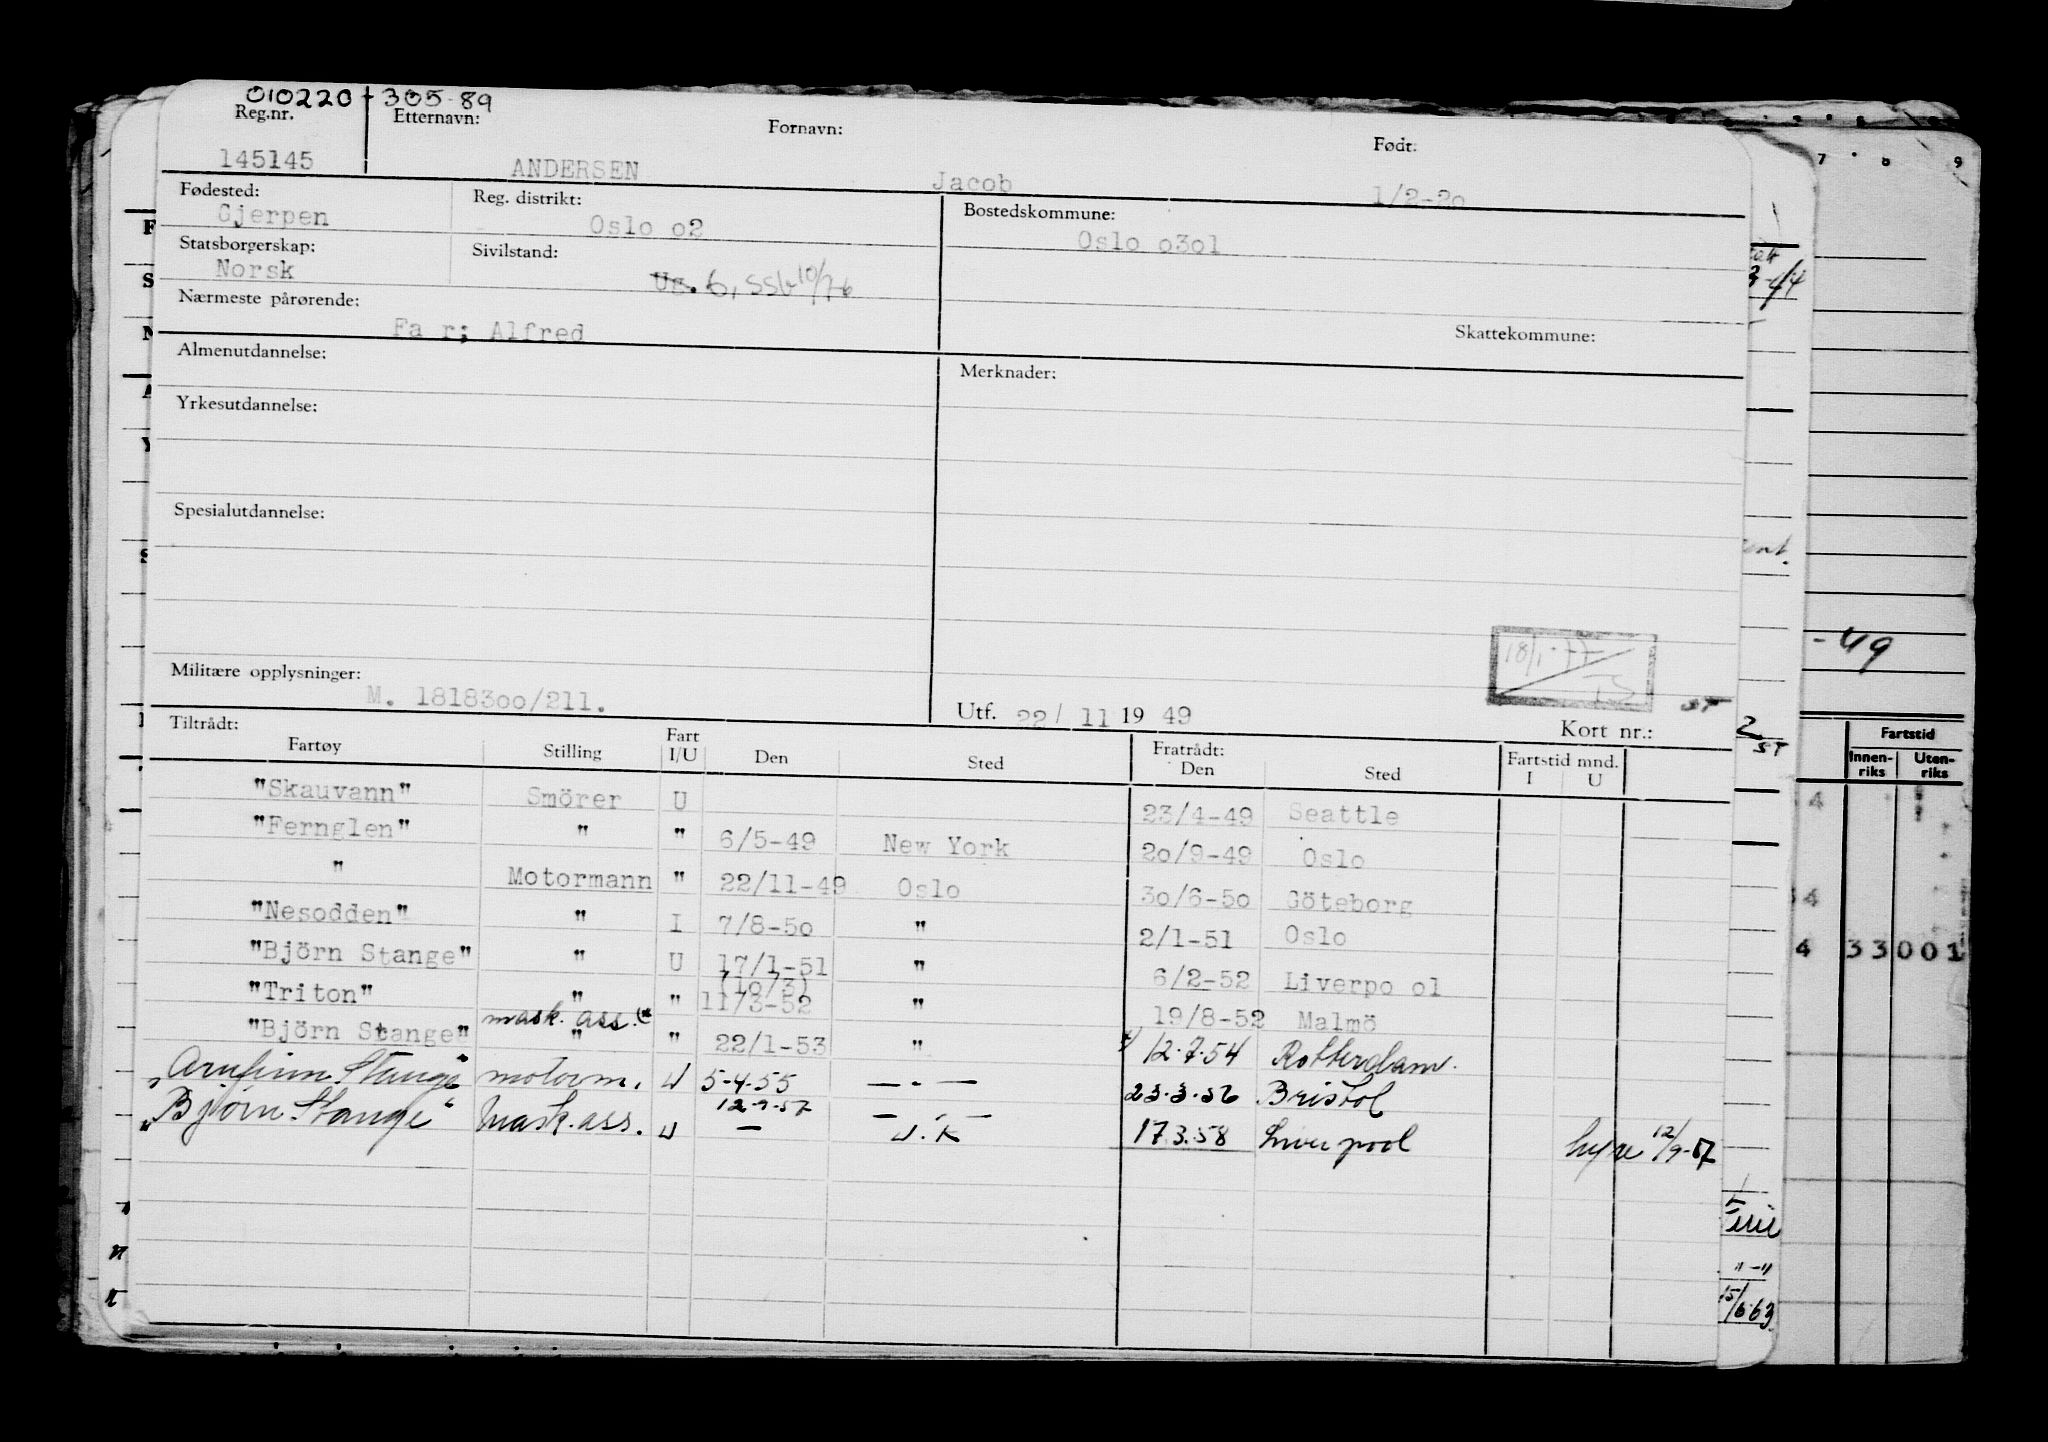 010220-305-89
Reg.nr. Etternavn: Fornavn: Født:
145145 ANDERSEN Jacob 1/2-2o
Fødested: Reg. distrikt: Bostedskommune:
Gjerpen Oslo o2 Oslo o3o1
Statsborgerskap: Sivilstand:
Norsk Ug. G, SSb 10/76
Nærmeste pårørende: Skattekommune:
Fa r; Alfred
Almenutdannelse: Merknader:
Yrkesutdannelse:
Spesialutdannelse:
18/1-77
Militære opplysninger:
M. 18183oo/211. Utf. 22/ 11 19 49 ST
Tiltrådt: Fratrådt: Kort nr.:
Fartøy Stilling Fart I/U Den Sted Den Sted Fartstid mnd. I U
"Skauvann" Smörer U 23/4-49 Seattle
"Fernglen" " " 6/5-49 New York 2o/9-49 Oslo
" Motormann " 22/11-49 Oslo 3o/6-5o Göteborg
"Nesodden" " I 7/8-5o " 2/1-51 Oslo
"Björn Stange" " U 17/1-51 " 6/2-52 Liverpo ol
(1o/3)
"Triton" " " 11/3-52 " 19/8-52 Malmö
mask. ass. (*
"Björn Stange" " " 22/1-53 " *) 12.7.54 Rotterdam.
"Arnfinn Stange motorm. U 5-4.55 — . — 23.3.56 Bristol
12-9.57
"Bjørn Stange" Mask.ass. U — U.K 17.3.58 Liverpool hyre 12/9-57
7 8 9
3-44
ent.
-49
2
ST
Fartstid
Innen-riks Uten-riks
4
34
4 33001
Ferie
"-"
15/6.63.